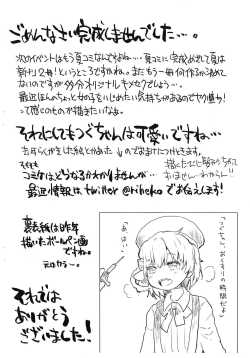 ごめんなさい完成しませんでした…。
次のイベントはもう夏コミなんですよね…。夏コミに完成あわせて夏は
新刊2冊!というところですかね。まだもう一冊何作るか決めて
ないのですが多分オリジナルキメセクでしょう…。
最近ほんのちょっと女の子をいじめたい気持ちがあるので
って感じのものが描きたいなぁ。
それにしてもつぐちゃんは可愛いですね…
古耳らくがきした絵とかあった↓のでおまけにつけときます。
コミケはどうなるかわかりませんが…
最近情報は twitter @riheko でお伝えします!
裏表紙は昨年
描いたボールペン画
ですね。
それでは
ありがとう
ございました!
おくすりの時間だよ
「あ…」